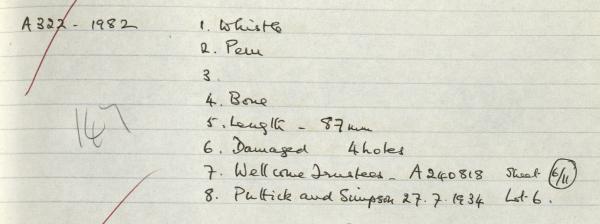 A322 - 1982 1. Whistle
2. Peru
3.
4. Bone
5. Length - 87mm
6. Damaged 4 holes
147
7. Wellcome Trustees - A240818 Sheet 6/11
8. Puttick and Simpson 27.7.1934 Lot 6.